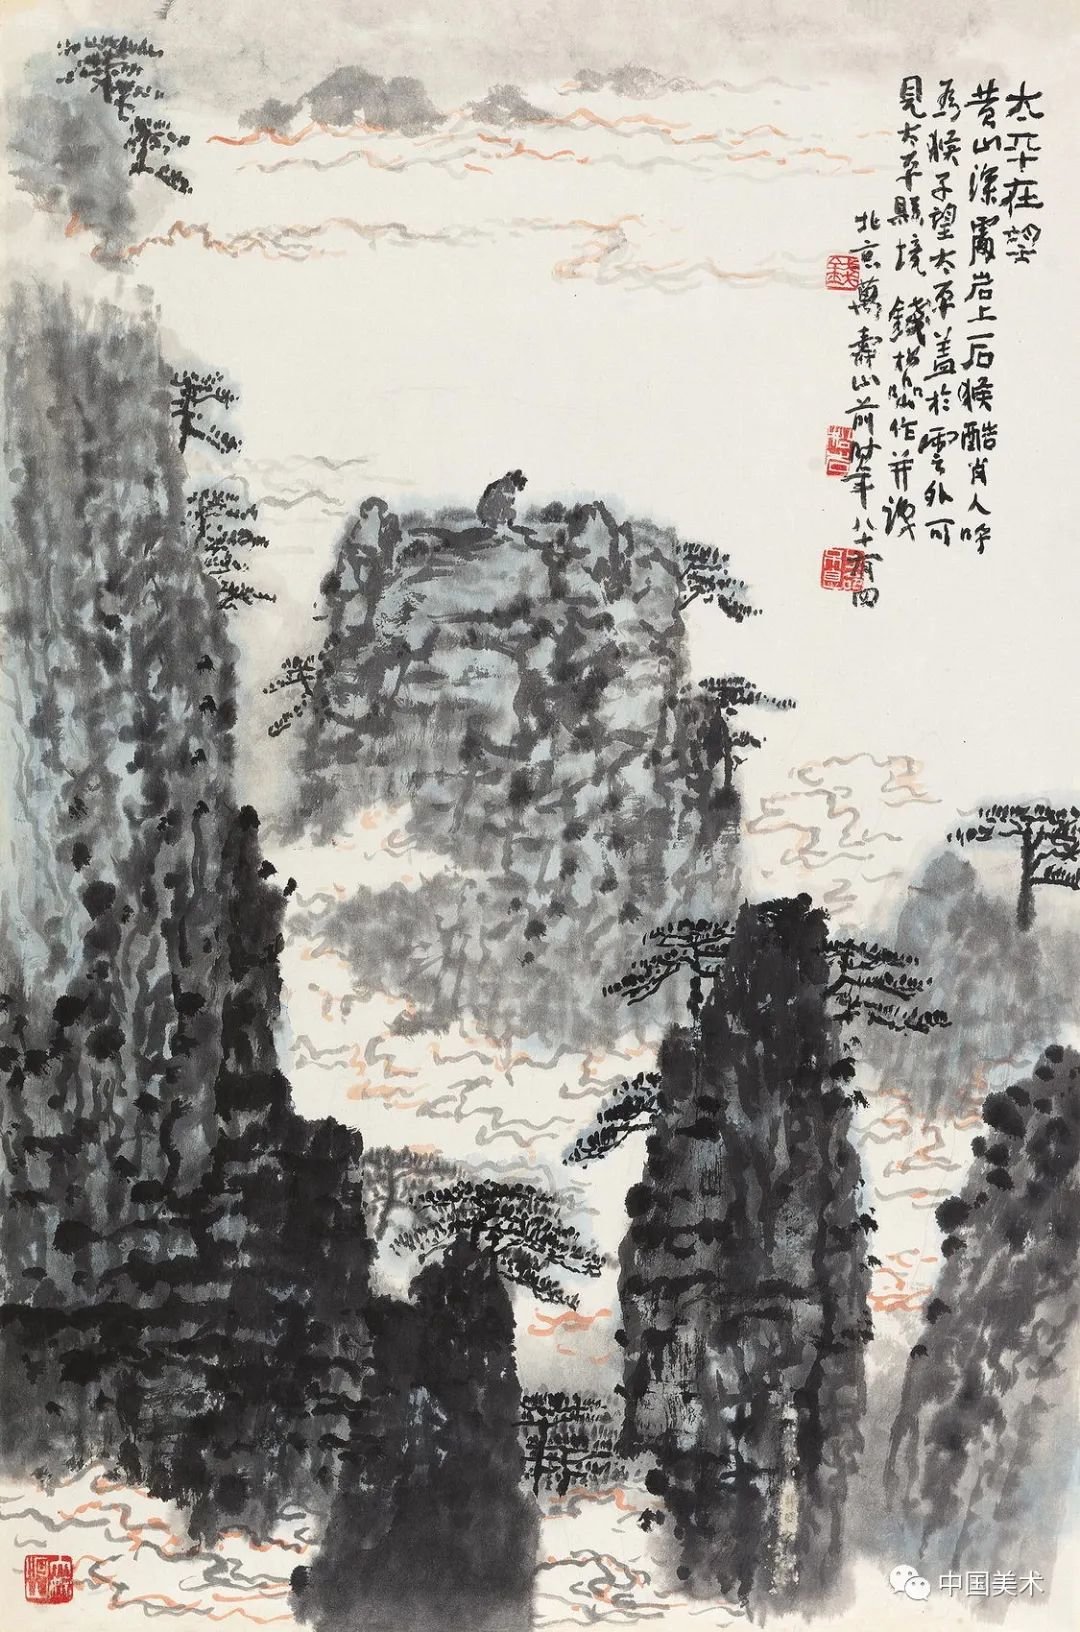 太平在望
黄山深处岩上一石猴酷肖人呼
为猴子望太平盖於雲外可
見太平縣境 錢松喦作并識
北京萬壽山前 時年八十有四
錢
中国美术